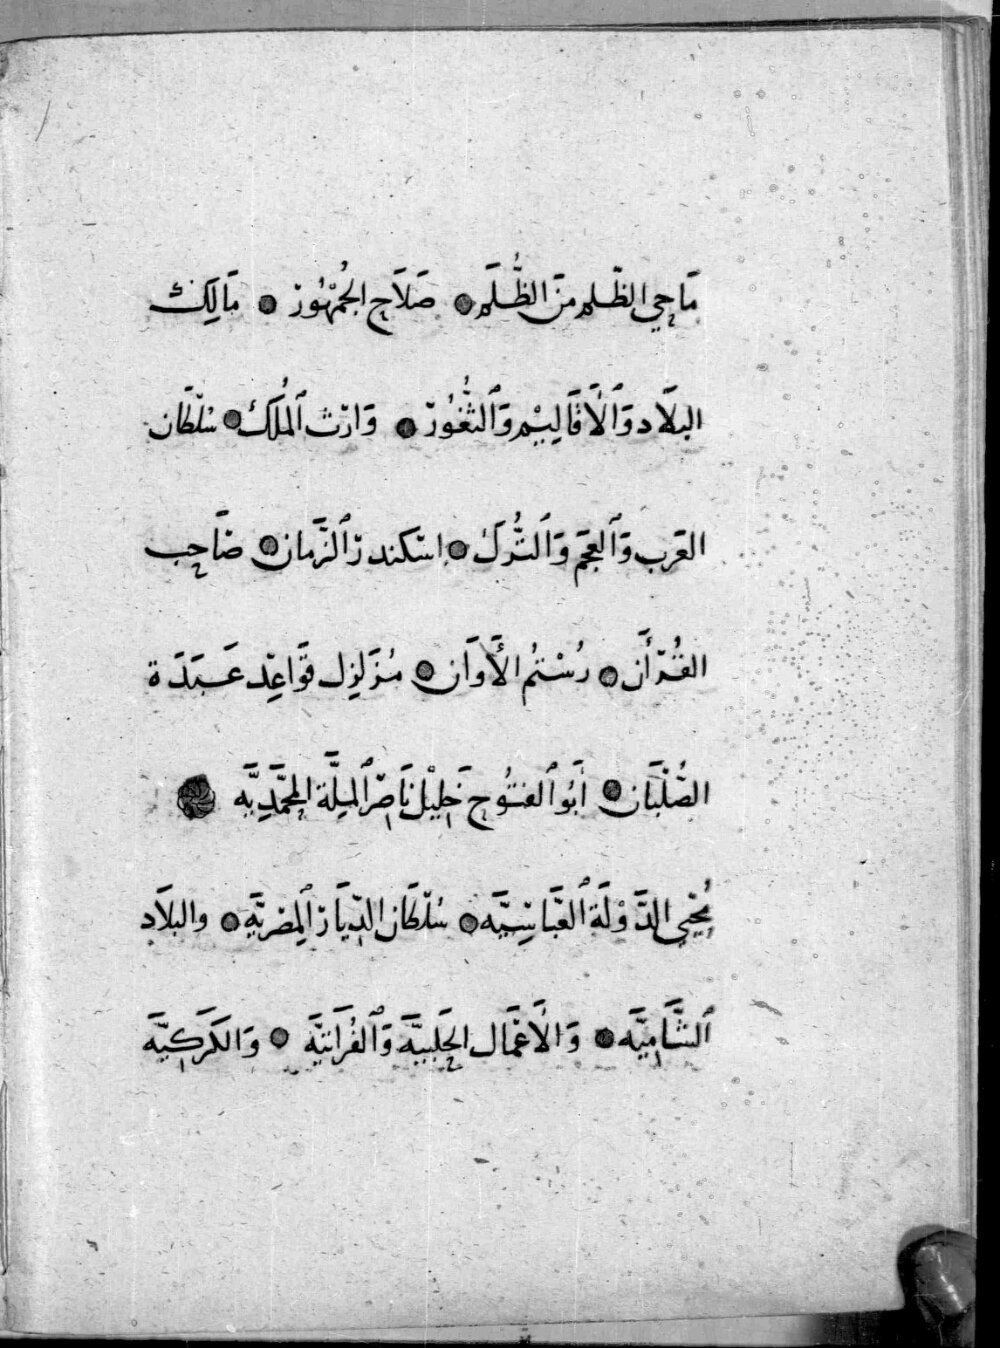 مَاحِي الظّلم مِنَ الظُّلَم ۞ صَلَاح الجُمْهُور ۞ مَالِك
البلَاد وَٱلأَقَالِيْم وَٱلثُّغُور ۞ وَارث ٱلمُلك ۞ سُلْطَان
العَرب وَٱلعَجَم وَٱلتُّرك ۞ اسْكندر ٱلزَّمان ۞ صَاحِب
القُرْأَن ۞ رُسْتُم الأَوَان ۞ مُزَلزِل قَوَاعِد عَبَدَة
الصُّلْبَان ۞ أَبُو ٱلفتُوح خَلِيْل نَاصِر ٱلمِلَّة المحَمَّدِيَّه ۞
مُحْيِي الدَّوْلَة ٱلعَبَّاسِيَّه ۞ سُلْطَان الدِّيَار ٱلمِصْرِيَّه ۞ والبلَاد
ٱلشَّامِيَّه ۞ وَالأَعْمَال الحَلَبيَّه وَٱلفُرَاتيَّه ۞ وَالكَرَكِيَّه